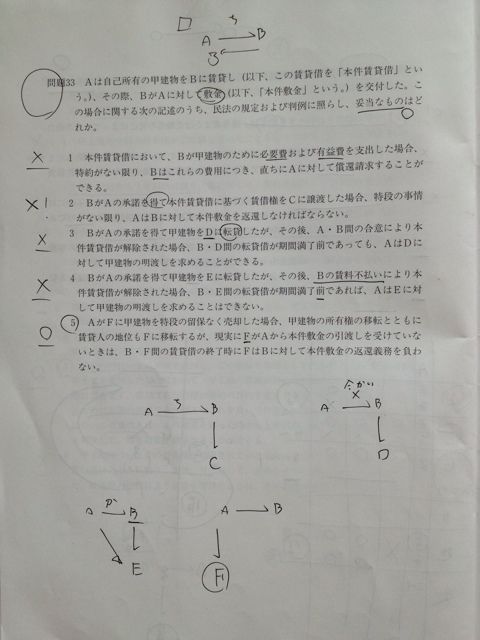 ち
A → B
3
問題33 Aは自己所有の甲建物をBに賃貸し(以下、この賃貸借を「本件賃貸借」とい
う。)、その際、BがAに対して敷金(以下、「本件敷金」という。)を交付した。こ
の場合に関する次の記述のうち、民法の規定および判例に照らし、妥当なものはど
れか。
× 1 本件賃貸借において、Bが甲建物のために必要費および有益費を支出した場合、
特約がない限り、Bはこれらの費用につき、直ちにAに対して償還請求することが
できる。
×! 2 BがAの承諾を得て本件賃貸借に基づく賃借権をCに譲渡した場合、特段の事情
がない限り、AはBに対して本件敷金を返還しなければならない。
× 3 BがAの承諾を得て甲建物をDに転貸したが、その後、A・B間の合意により本
件賃貸借が解除された場合、B・D間の転貸借が期間満了前であっても、AはDに
対して甲建物の明渡しを求めることができる。
× 4 BがAの承諾を得て甲建物をEに転貸したが、その後、Bの賃料不払いにより本
件賃貸借が解除された場合、B・E間の転貸借が期間満了前であれば、AはEに対
して甲建物の明渡しを求めることはできない。
○ 5 AがFに甲建物を特段の留保なく売却した場合、甲建物の所有権の移転とともに
賃貸人の地位もFに移転するが、現実にFがAから本件敷金の引渡しを受けていな
いときは、B・F間の賃貸借の終了時にFはBに対して本件敷金の返還義務を負わ
ない。
ち
A → B
C
×
A → B
D
B
E
A → B
F